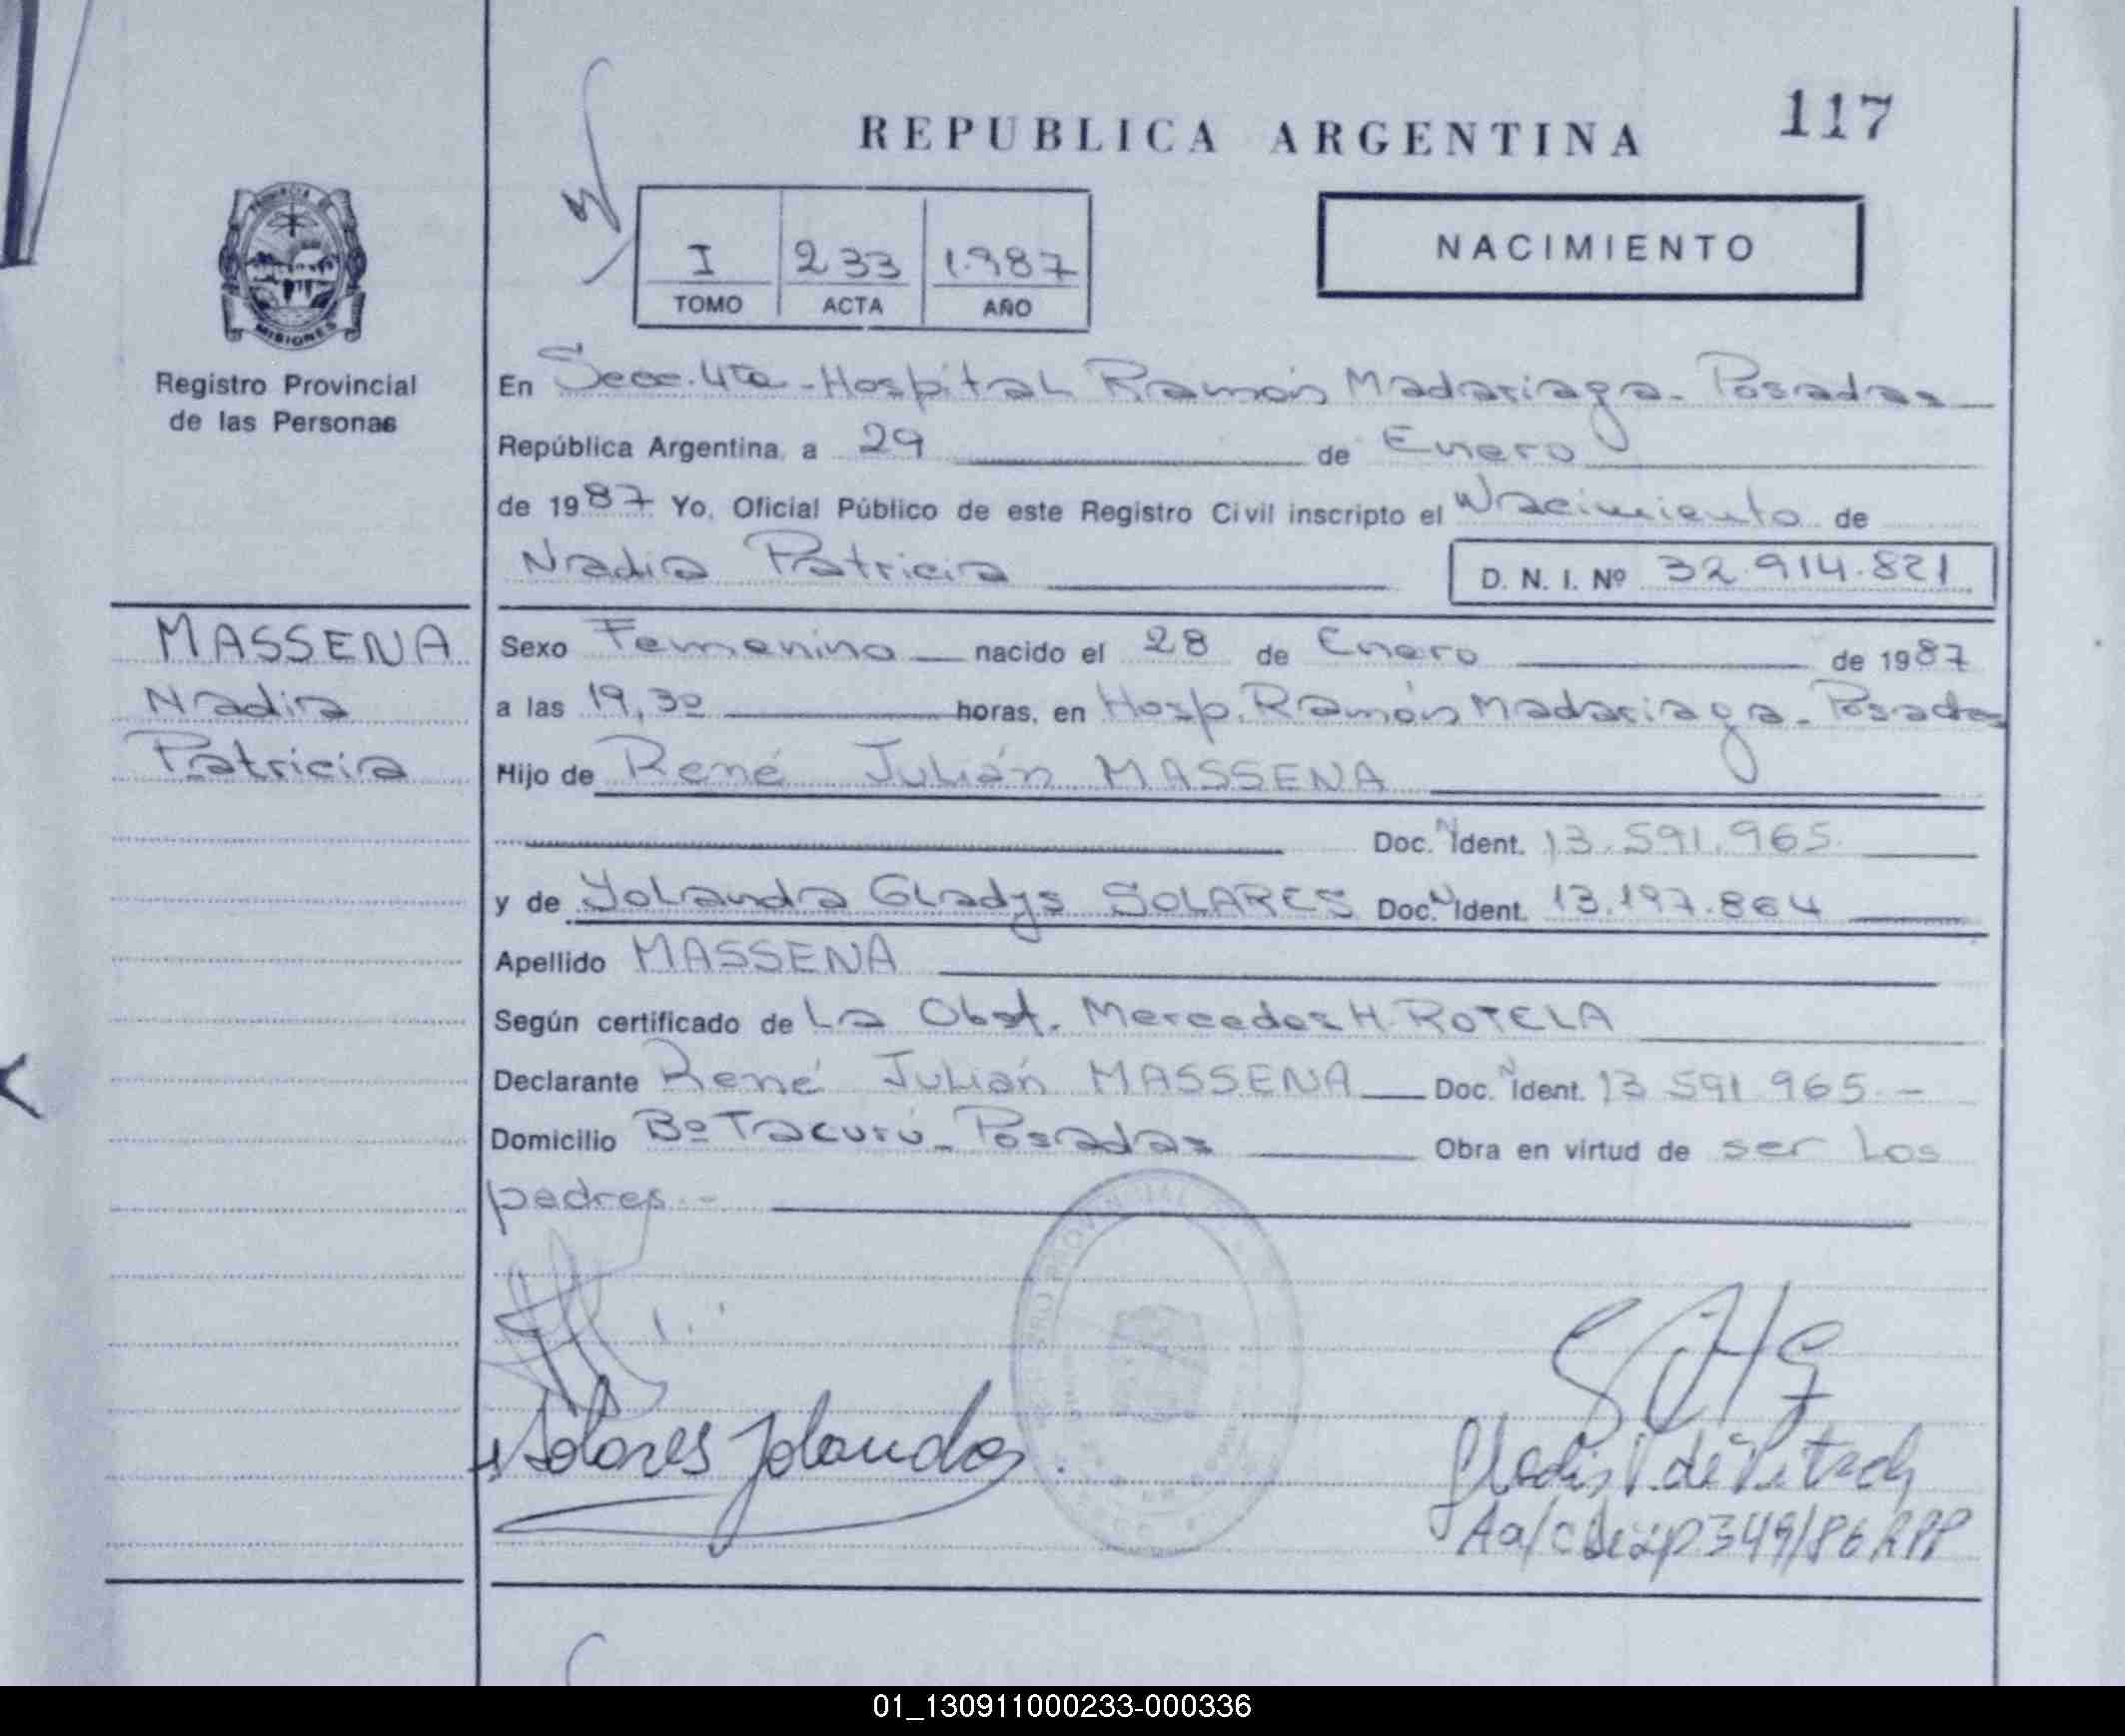 REPUBLICA ARGENTINA
117
PROVINCIA DE
MISIONES
Registro Provincial
de las Personas
I 233 1.987
TOMO ACTA AÑO
NACIMIENTO
En Secc. 4ta - Hospital Ramón Madariaga - Posadas
República Argentina, a 29 de Enero
de 1987 Yo, Oficial Público de este Registro Civil inscripto el Nacimiento de
Nadia Patricia
D. N. I. Nº 32.914.821
MASSENA
Nadia
Patricia
Sexo Femenino nacido el 28 de Enero de 1987
a las 19,30 horas, en Hosp. Ramón Madariaga - Posadas
Hijo de René Julián MASSENA
Doc. N Ident. 13.591.965
y de Yolanda Gladys SOLARES Doc. N Ident. 13.197.864
Apellido MASSENA
Según certificado de La Obst. Mercedes H. ROTELA
Declarante René Julián MASSENA Doc. N Ident. 13 591 965 -
Domicilio Bº Tacurú - Posadas Obra en virtud de ser los
padres -
PROVINCIAL
Solares Yolanda
349/86 RPP
01_130911000233-000336